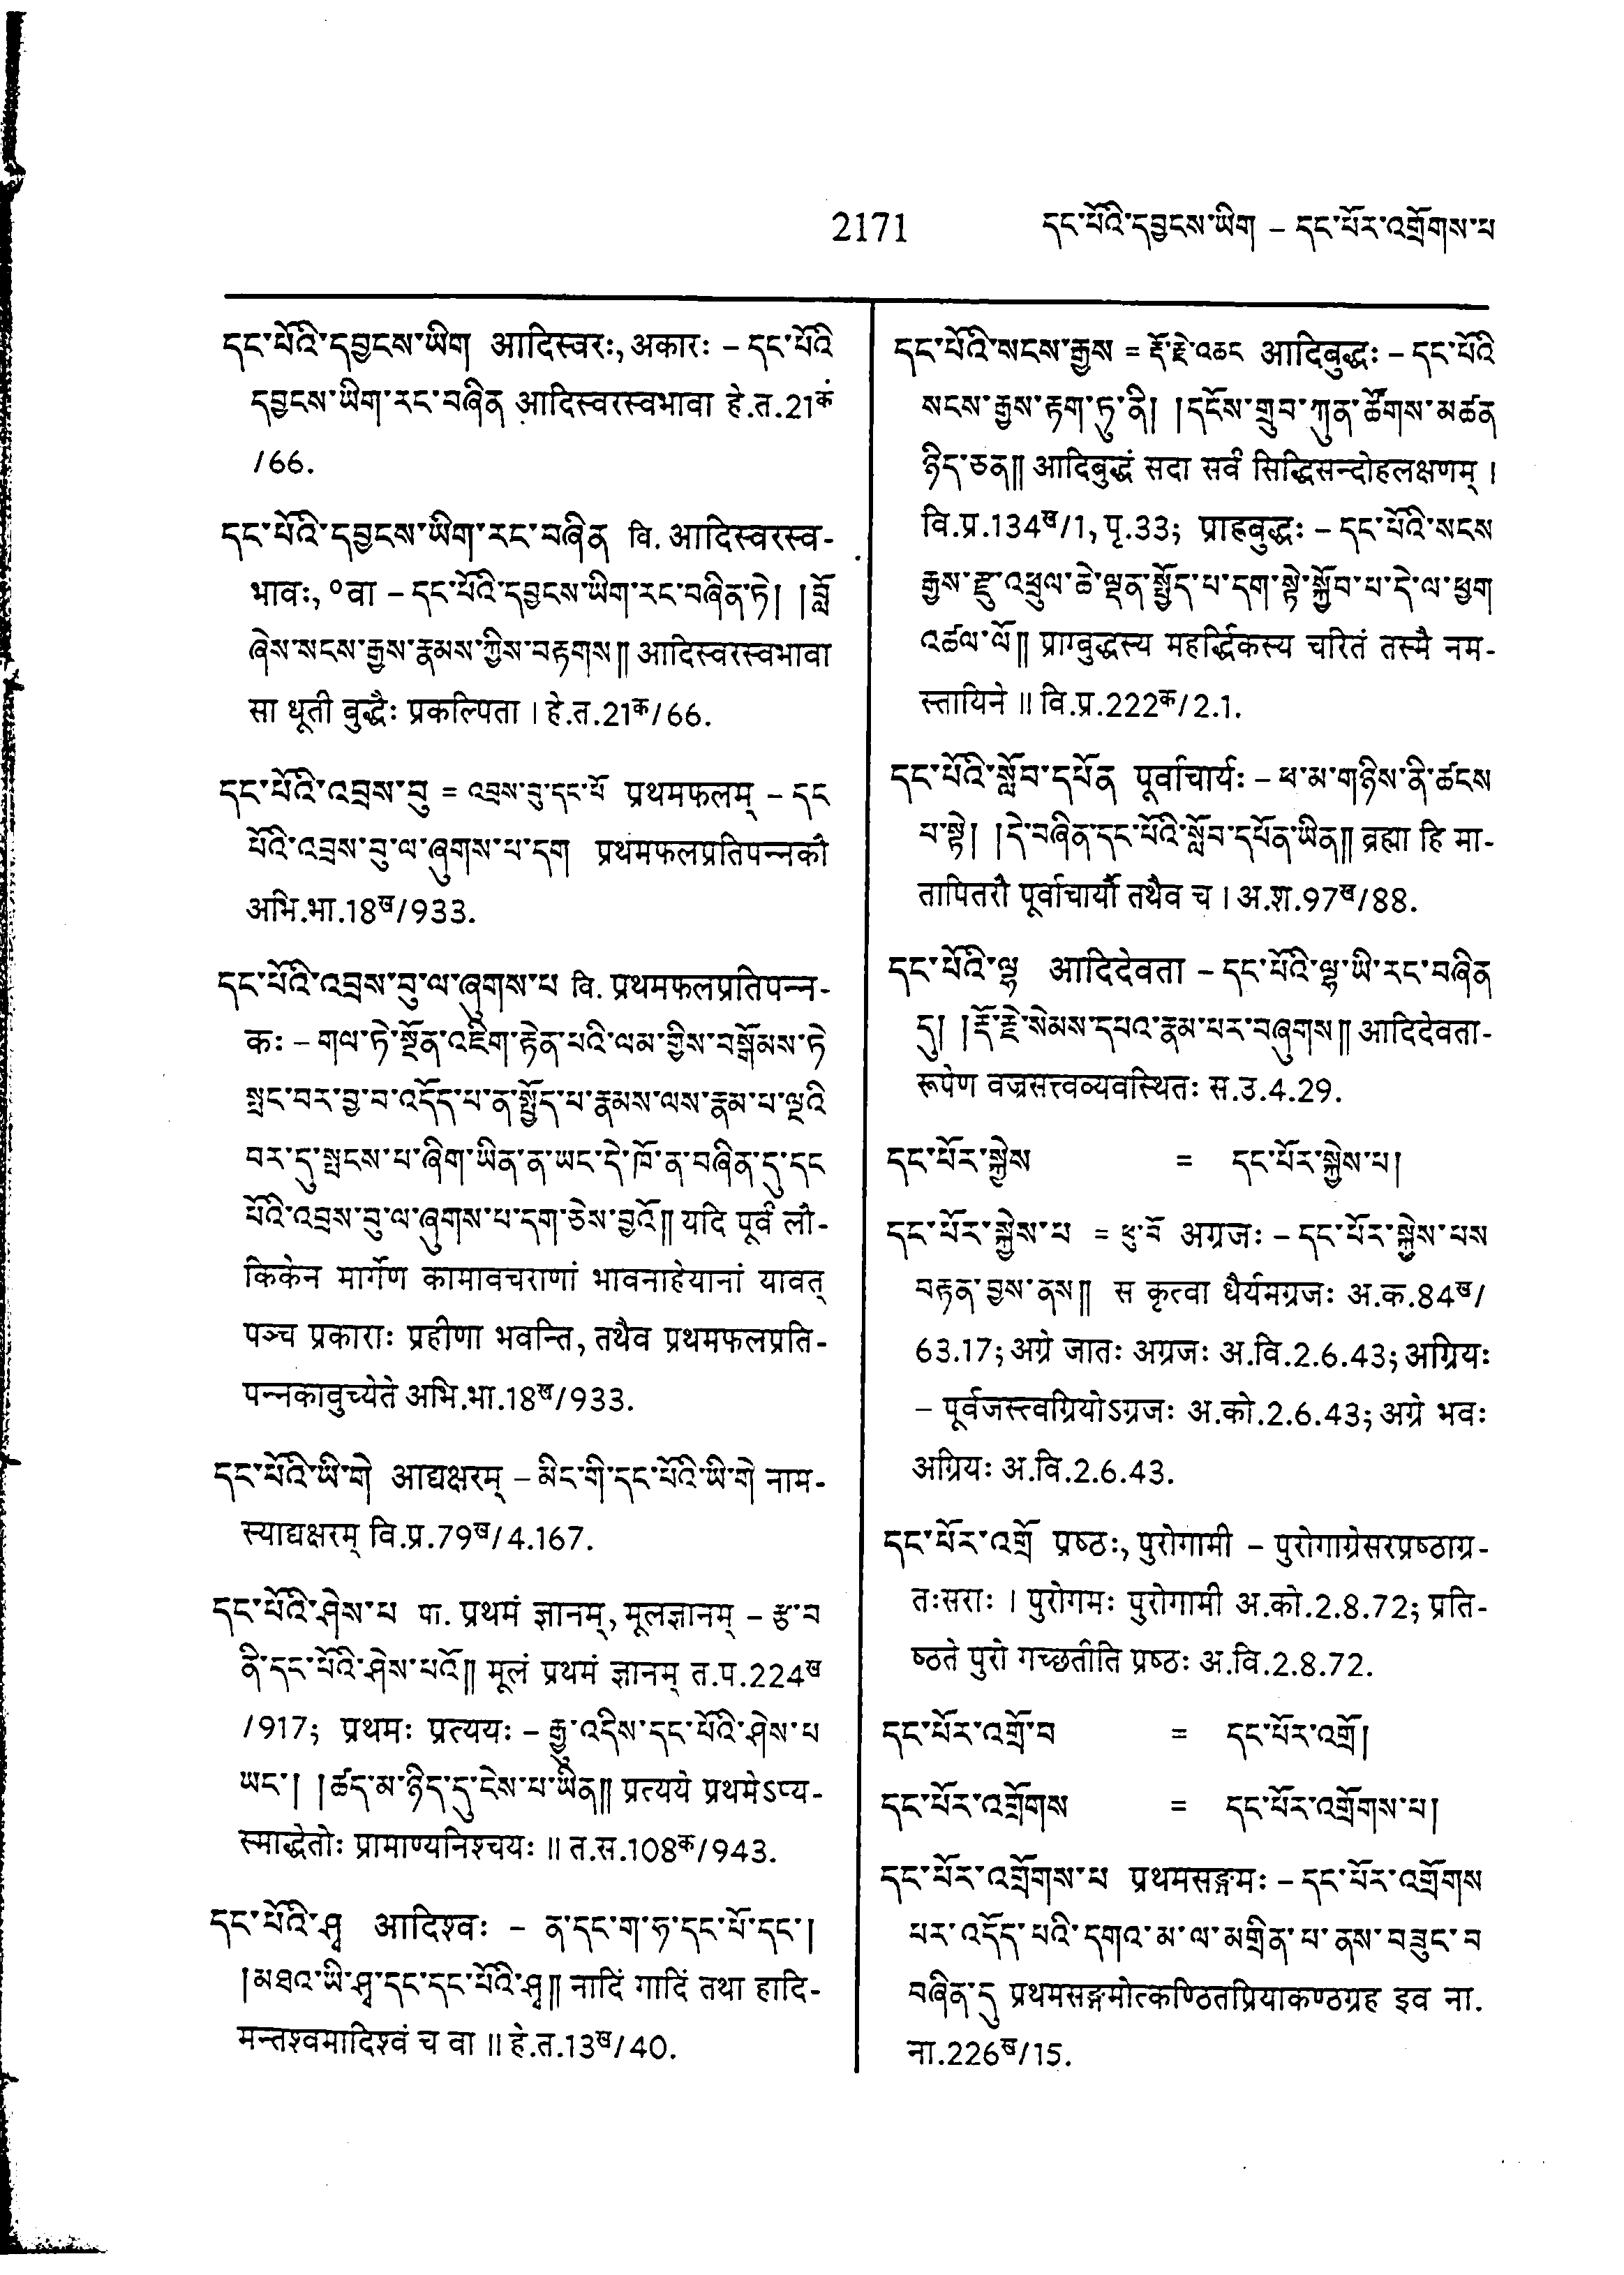 2171
དང་པོའི་དབྱངས་ཡིག – དང་པོར་འགྲོགས་པ
དང་པོའི་དབྱངས་ཡིག आदिस्वरः, अकारः – དང་པོའི
དབྱངས་ཡིག་རང་བཞིན आदिस्वरस्वभावा हे.त.21क
/66.
དང་པོའི་དབྱངས་ཡིག་རང་བཞིན वि. आदिस्वरस्व-
भावः, ०वा – དང་པོའི་དབྱངས་ཡིག་རང་བཞིན་ཏེ། །བློ
ཞེས་སངས་རྒྱས་རྣམས་ཀྱིས་བརྟགས༎ आदिस्वरस्वभावा
सा धूती बुद्धैः प्रकल्पिता । हे.त.21क/66.
དང་པོའི་འབྲས་བུ = འབྲས་བུ་དང་པོ प्रथमफलम् – དང
པོའི་འབྲས་བུ་ལ་ཞུགས་པ་དག प्रथमफलप्रतिपन्नकौ
अभि.भा.18ख/933.
དང་པོའི་འབྲས་བུ་ལ་ཞུགས་པ वि. प्रथमफलप्रतिपन्न-
कः – གལ་ཏེ་སྔོན་འཇིག་རྟེན་པའི་ལམ་གྱིས་བསྒོམས་ཏེ
སྤང་བར་བྱ་བ་འདོད་པ་ན་སྤྱོད་པ་རྣམས་ལས་རྣམ་པ་ལྔའི
བར་དུ་སྤངས་པ་ཞིག་ཡིན་ན་ཡང་དེ་ཁོ་ན་བཞིན་དུ་དང
པོའི་འབྲས་བུ་ལ་ཞུགས་པ་དག་ཅེས་བྱའོ༎ यदि पूर्वं लौ-
किकेन मार्गेण कामावचराणां भावनाहेयानां यावत्
पञ्च प्रकाराः प्रहीणा भवन्ति, तथैव प्रथमफलप्रति-
पन्नकावुच्येते अभि.भा.18ख/933.
དང་པོའི་ཡི་གེ आद्यक्षरम् – མིང་གི་དང་པོའི་ཡི་གེ नाम-
स्याद्यक्षरम् वि.प्र.79ख/4.167.
དང་པོའི་ཤེས་པ पा. प्रथमं ज्ञानम्, मूलज्ञानम् – རྩ་བ
ནི་དང་པོའི་ཤེས་པའོ༎ मूलं प्रथमं ज्ञानम् त.प.224ख
/917; प्रथमः प्रत्ययः – རྒྱུ་འདིས་དང་པོའི་ཤེས་པ
ཡང་། །ཚད་མ་ཉིད་དུ་ངེས་པ་ཡིན༎ प्रत्यये प्रथमेऽप्य-
स्माद्धेतोः प्रामाण्यनिश्चयः ॥ त.स.108क/943.
དང་པོའི་ཤྭ आदिश्वः – ན་དང་ག་ཧ་དང་པོ་དང་།
།མཐའ་ཡི་ཤྭ་དང་དང་པོའི་ཤྭ༎ नादिं गादिं तथा हादि-
मन्तश्वमादिश्वं च वा ॥ हे.त.13ख/40.
དང་པོའི་སངས་རྒྱས = རྡོ་རྗེ་འཆང आदिबुद्धः – དང་པོའི
སངས་རྒྱས་རྟག་ཏུ་ནི། །དངོས་གྲུབ་ཀུན་ཚོགས་མཚན
ཉིད་ཅན༎ आदिबुद्धं सदा सर्वं सिद्धिसन्दोहलक्षणम् ।
वि.प्र.134ख/1, पृ.33; प्राह्रबुद्धः – དང་པོའི་སངས
རྒྱས་རྫུ་འཕྲུལ་ཆེ་ལྡན་སྤྱོད་པ་དག་སྟེ་སྐྱོབ་པ་དེ་ལ་ཕྱག
འཚལ་ལོ༎ प्राग्बुद्धस्य महर्द्धिकस्य चरितं तस्मै नम-
स्तायिने ॥ वि.प्र.222क/2.1.
དང་པོའི་སློབ་དཔོན पूर्वाचार्यः – ཕ་མ་གཉིས་ནི་ཚངས
པ་སྟེ། །དེ་བཞིན་དང་པོའི་སློབ་དཔོན་ཡིན༎ ब्रह्मा हि मा-
तापितरौ पूर्वाचार्यौ तथैव च । अ.श.97ख/88.
དང་པོའི་ལྷ आदिदेवता – དང་པོའི་ལྷ་ཡི་རང་བཞིན
དུ། །རྡོ་རྗེ་སེམས་དཔའ་རྣམ་པར་བཞུགས༎ आदिदेवता-
रूपेण वज्रसत्त्वव्यवस्थितः स.उ.4.29.
དང་པོར་སྐྱེས = དང་པོར་སྐྱེས་པ།
དང་པོར་སྐྱེས་པ = ཕུ་བོ अग्रजः – དང་པོར་སྐྱེས་པས
བརྟན་བྱས་ནས༎ स कृत्वा धैर्यमग्रजः अ.क.84ख/
63.17; अग्रे जातः अग्रजः अ.वि.2.6.43; अग्रियः
– पूर्वजस्त्वग्रियोऽग्रजः अ.को.2.6.43; अग्रे भवः
अग्रियः अ.वि.2.6.43.
དང་པོར་འགྲོ प्रष्ठः, पुरोगामी – पुरोगाग्रेसरप्रष्ठाग्र-
तःसराः । पुरोगमः पुरोगामी अ.को.2.8.72; प्रति-
ष्ठते पुरो गच्छतीति प्रष्ठः अ.वि.2.8.72.
དང་པོར་འགྲོ་བ = དང་པོར་འགྲོ།
དང་པོར་འགྲོགས = དང་པོར་འགྲོགས་པ།
དང་པོར་འགྲོགས་པ प्रथमसङ्गमः – དང་པོར་འགྲོགས
པར་འདོད་པའི་དགའ་མ་ལ་མགྲིན་པ་ནས་བཟུང་བ
བཞིན་དུ प्रथमसङ्गमोत्कण्ठितप्रियाकण्ठग्रह इव ना.
ना.226ख/15.